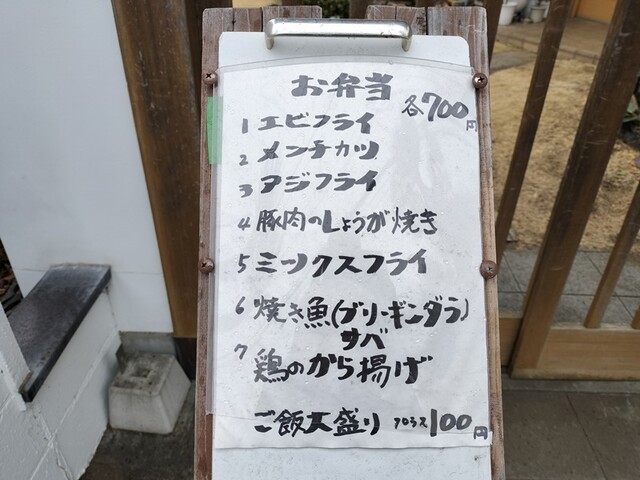 お弁当 各700円
1 エビフライ
2 メンチカツ
3 アジフライ
4 豚肉のしょうが焼き
5 ミックスフライ
6 焼き魚(ブリ・ギンダラ)
サバ
7 鶏のから揚げ
ご飯大盛り プラス100円